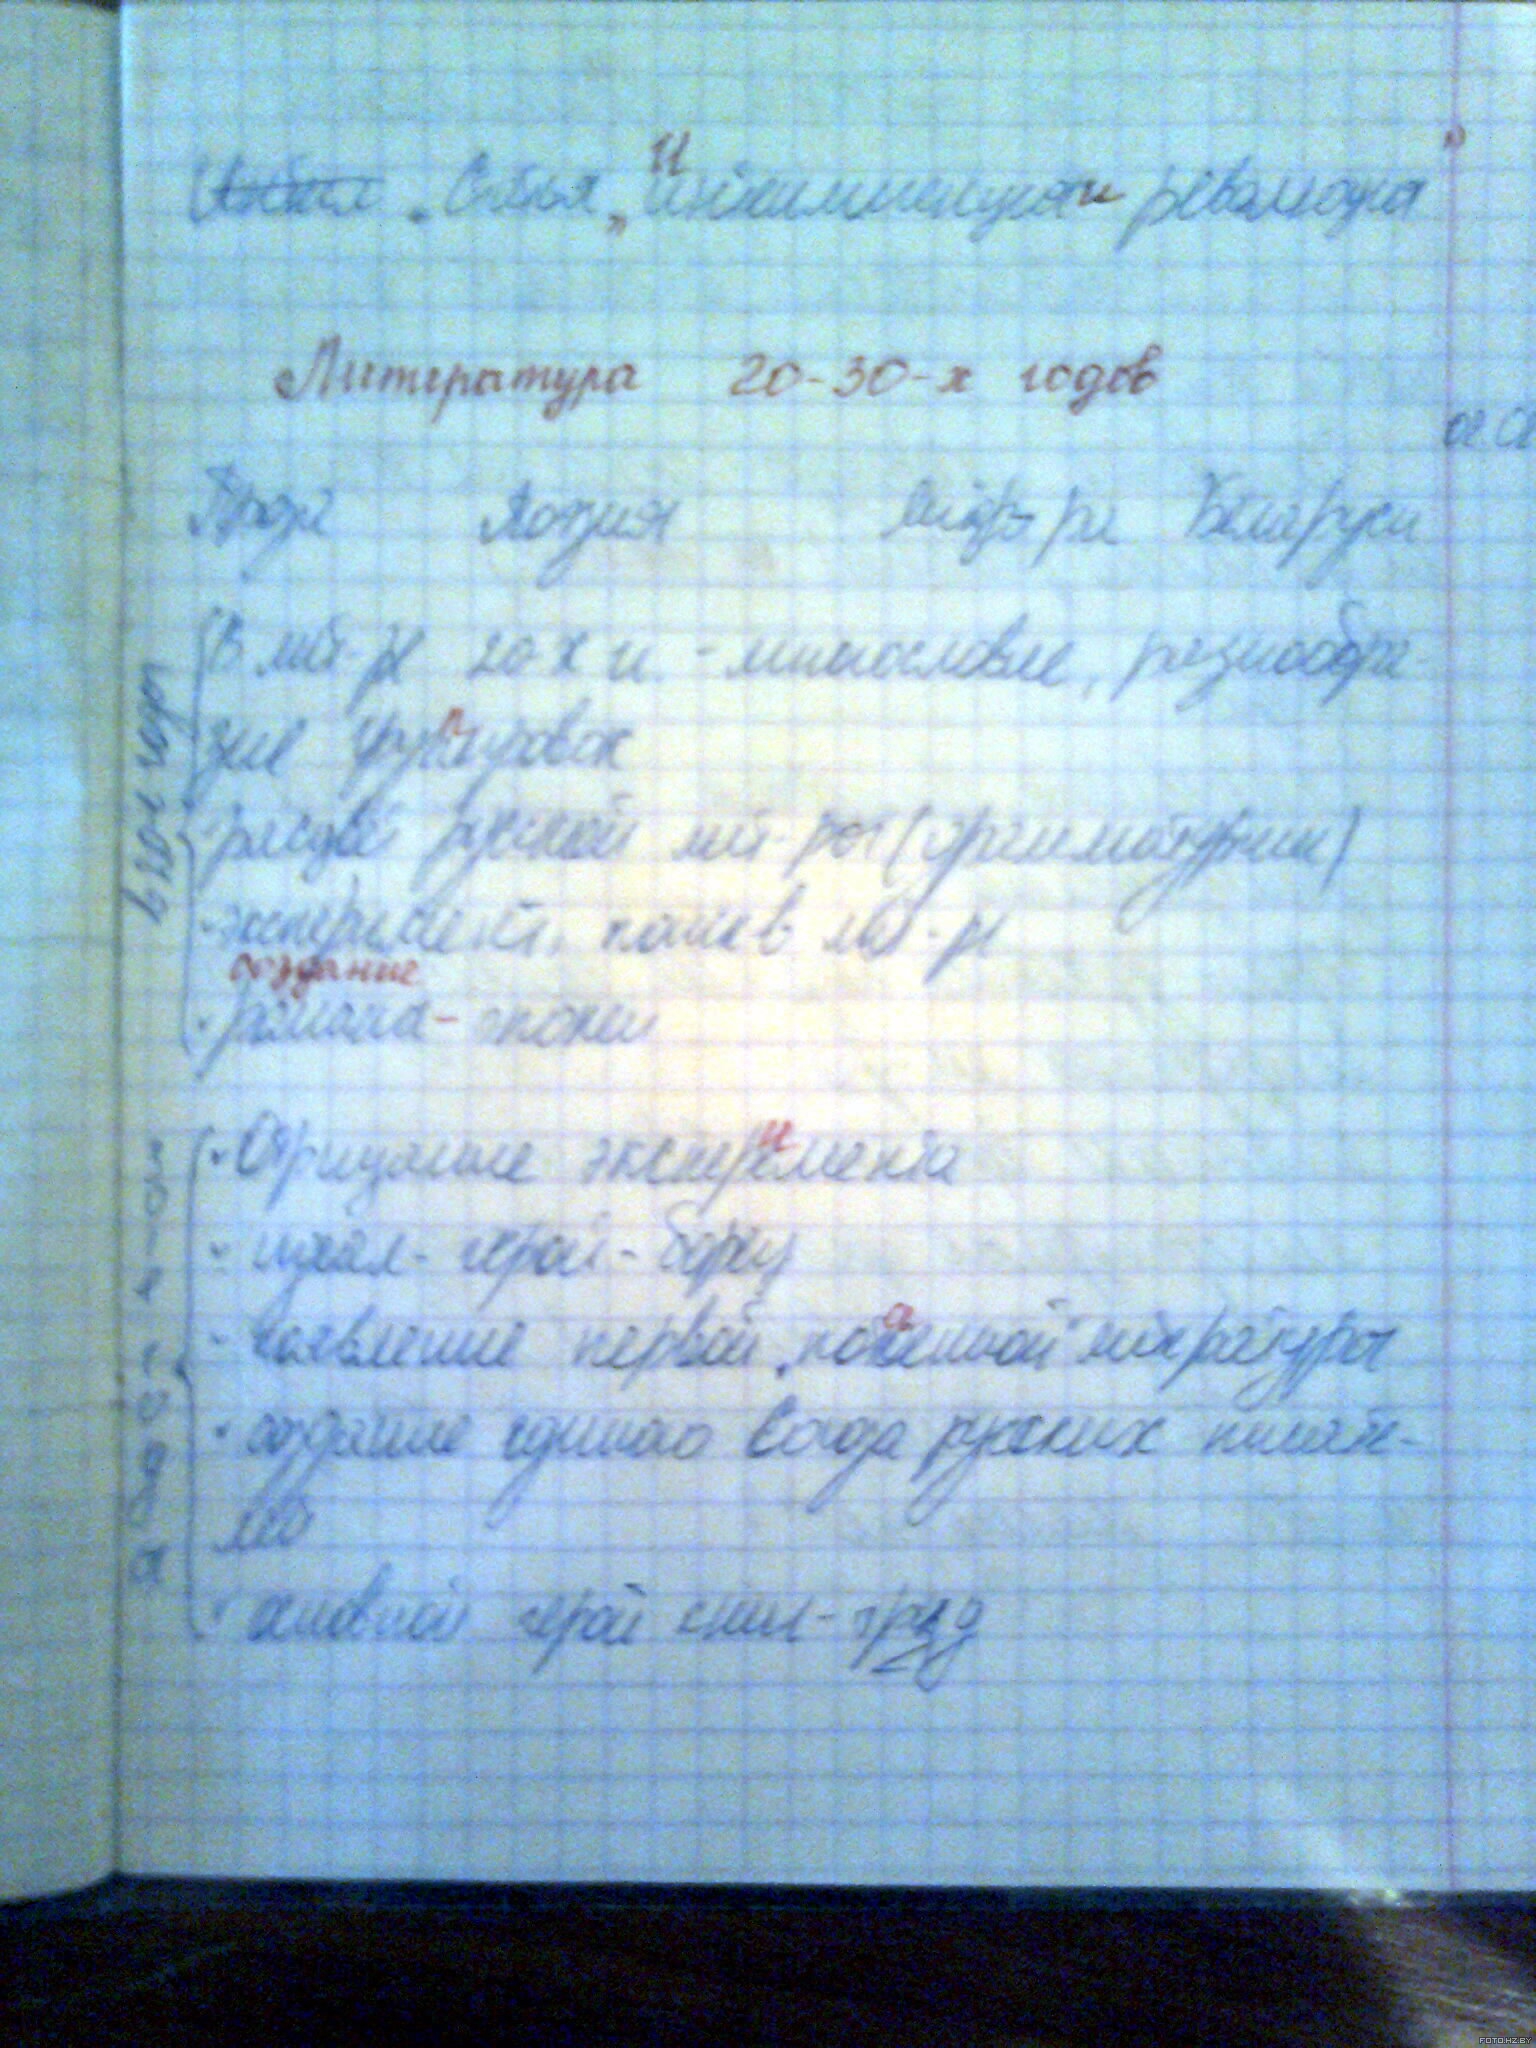 Статья „Интеллигенция и революция"
Литература 20-30-х годов
Проза Поэзия Лит-ра Беларуси
В лит-ре 20-х г. - многословие, разнообра-
зие группировок
в 20-е годы
расцвет русской лит-ры (драматургии)
эксперимент, поиск в лит-ре
создание
романа - эпопеи
Отрицание эксперимента
идеал - герой - борец
появление первой „потаенной" литературы
создание единого Союза русских писате-
лей
основной герой книг - труд
FOTO.HZ.BY